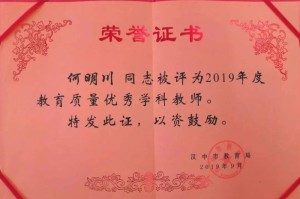 荣誉证书
何明川 同志被评为2019年度
教育质量优秀学科教师。
特发此证，以资鼓励。
汉中市教育局
2019年9月